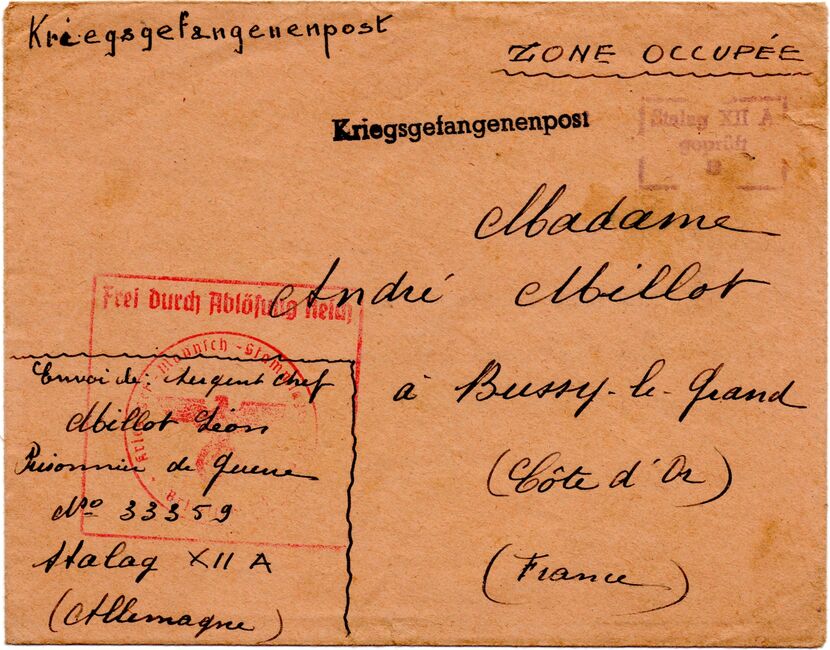 Kriegsgefangenenpost
ZONE OCCUPÉE
Kriegsgefangenenpost
Stalag XII A
geprüft
Madame
André Millot
à Bussy-le-Grand
(Côte d'Or)
(France)
Frei durch Ablösung Reich
Envoi de: Sergent chef
Millot Léon
Prisonnier de Guerre
No 33359
Stalag XII A
(Allemagne)